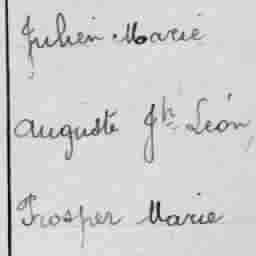 Julien Marie
Auguste Jh Léon
Prosper Marie